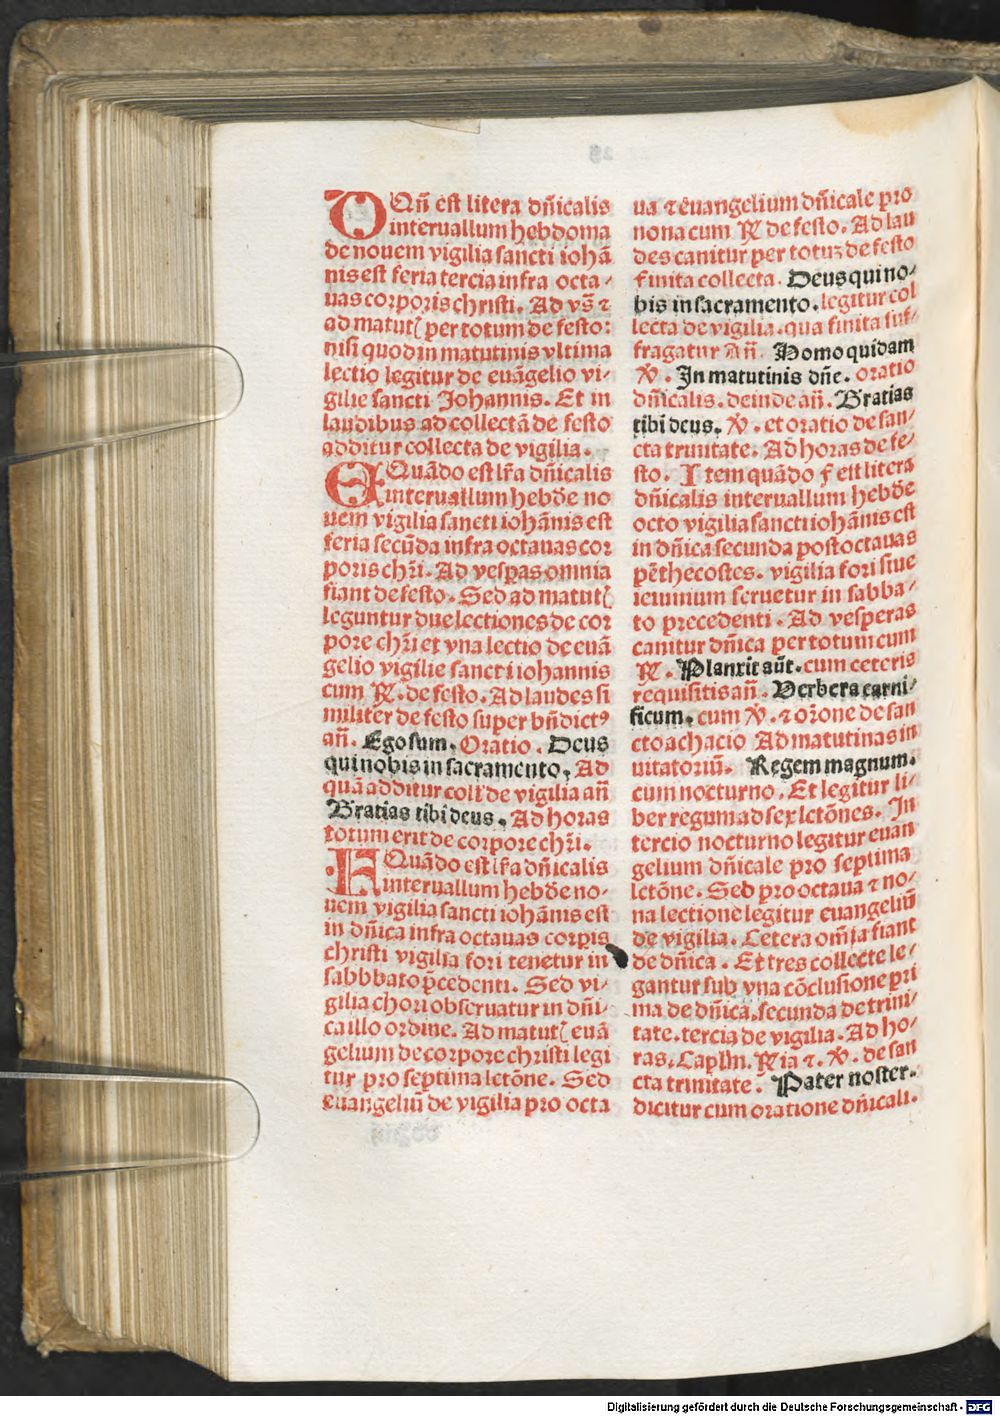 D Qn̄ est litera dn̄icalis
interuallum hebdoma
de nouem vigilia sancti iohā
nis est feria tercia infra octa⸗
uas corporis christi. Ad vs̄ ⁊
ad matutꝭ per totum de festo:
nisi quod in matutinis vltima
lectio legitur de euāgelio vi⸗
gilie sancti Johannis. Et in
laudibus ad collectā de festo
additur collecta de vigilia.
E Quādo est lr̄a dn̄icalis
interuallum hebdōe no
uem vigilia sancti iohānis est
feria secūda infra octauas cor
poris chr̄i. Ad vesp̄as omnia
fiant de festo. Sed ad matutꝭ
leguntur due lectiones de cor
pore chr̄i et vna lectio de euā
gelio vigilie sancti iohannis
cum ℟. de festo. Ad laudes si
militer de festo super bn̄dictꝰ
an̄. Ego sum. Oratio. Deus
qui nobis in sacramento. Ad
quā additur coll̄ de vigilia an̄
Gratias tibi deus. Ad horas
totum erit de corpore chr̄i.
F Quādo est lr̄a dn̄icalis
interuallum hebdōe no⸗
uem vigilia sancti iohānis est
in dn̄ica infra octauas corp̄is
christi vigilia fori tenetur in
sabbbato p̄cedenti. Sed vi⸗
gilia chori obseruatur in dn̄i⸗
ca illo ordine. Ad matutꝭ euā
gelium de corpore christi legi
tur pro septima lctōne. Sed
euangeliū de vigilia pro octa
ua ⁊ euangelium dn̄icale pro
nona cum ℟ de festo. Ad lau
des canitur per totuꝫ de festo
finita collecta. Deus qui no⸗
bis in sacramento. legitur col
lecta de vigilia. qua finita suf⸗
fragatur an̄. Homo quidam
℣. In matutinis dn̄e. oratio
dn̄icalis. deinde an̄. Gratias
tibi deus. ℣. et oratio de san⸗
cta trinitate. Ad horas de fe⸗
sto. Item quādo f est litera
dn̄icalis interuallum hebdōe
octo vigilia sancti iohānis est
in dn̄ica secunda post octauas
pēthecostes. vigilia fori siue
ieiunium seruetur in sabba⸗
to precedenti. Ad vesperas
canitur dn̄ica per totum cum
℟. Planxit aūt. cum ceteris
requisitis an̄. Verbera carni⸗
ficum. cum ℣. ⁊ orōne de san
cto achacio Ad matutinas in
uitatoriū. Regem magnum.
cum nocturno. Et legitur li⸗
ber regum ad sex lctōnes. In
tercio nocturno legitur euan
gelium dn̄icale pro septima
lctōne. Sed pro octaua ⁊ no⸗
na lectione legitur euangeliū
de vigilia. Cetera om̄ia fiant
de dn̄ica. Et tres collecte le⸗
gantur sub vna cōclusione pri
ma de dn̄ica. secunda de trini⸗
tate. tercia de vigilia. Ad ho⸗
ras. Caplm̄. ℟ia ⁊. ℣. de san
cta trinitate. Pater noster.
dicitur cum oratione dn̄icali.
Digitalisierung gefördert durch die Deutsche Forschungsgemeinschaft - DFG